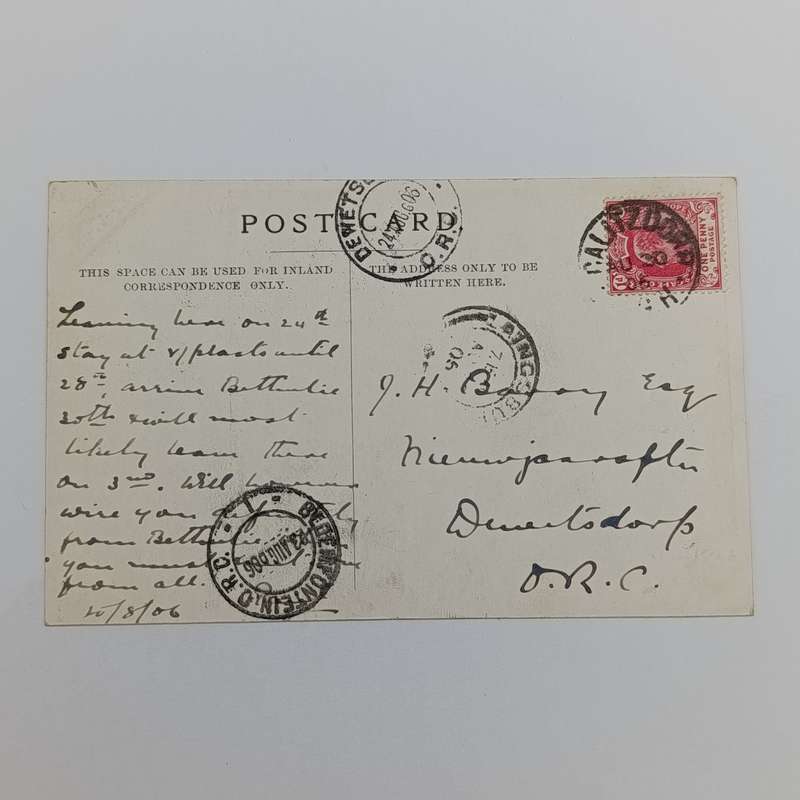 POST CARD
THIS SPACE CAN BE USED FOR INLAND
CORRESPONDENCE ONLY.
THE ADDRESS ONLY TO BE
WRITTEN HERE.
Leaving here on 24th
stay at v/plaats until
28th, arrive Bethulie
30th & will most
likely leave there
on 3rd. Will
wire you
from Bethulie
you must
from all.
20/8/06
J. H. Esq
Dewetsdorp
O.R.C.
DEWETS
24 AUG 06
O.R.
CALITZDORP
AU 20
06
ONE PENNY
POSTAGE
LAINGSBU
BLOEMFONTEIN. O.R.C.
1
23 AUG 06